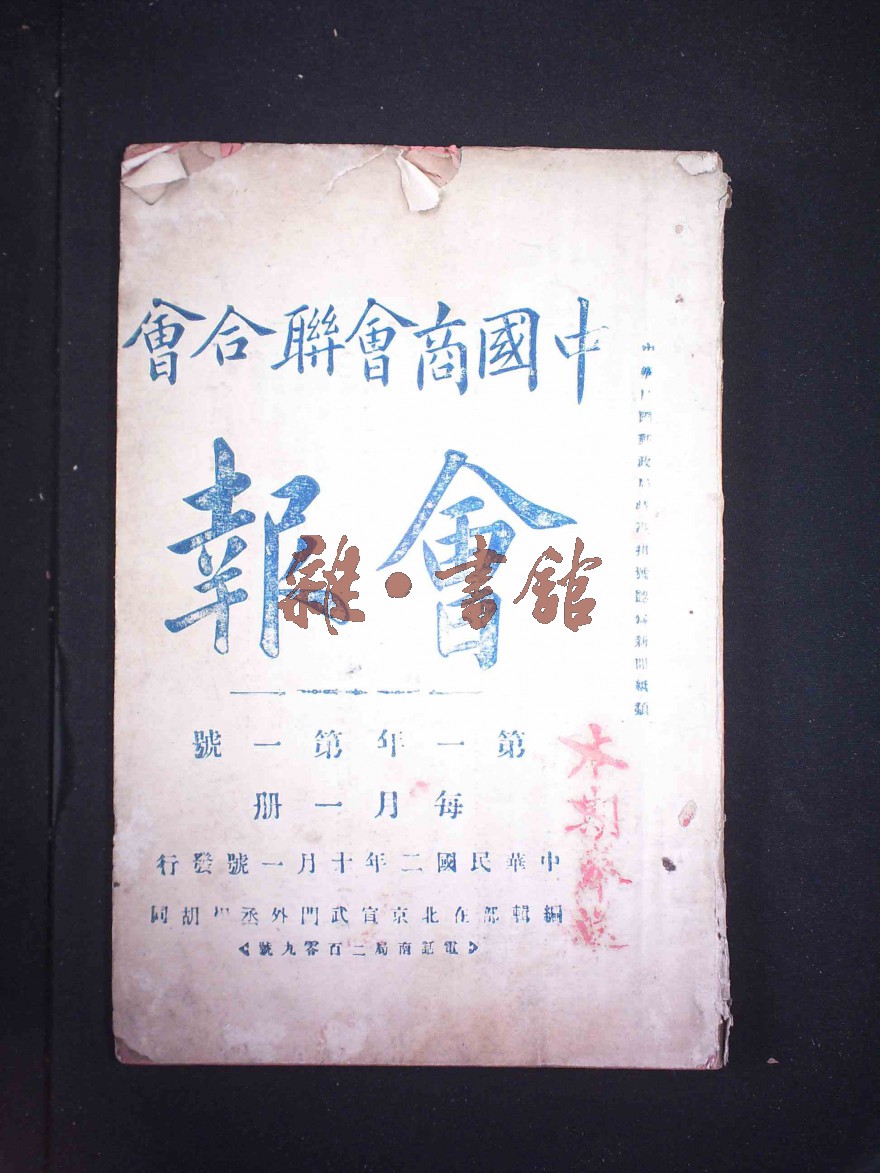 中華民國郵政局特准掛號認為新聞紙類
中國商會聯合會
會報
雜·書館
第一年第一號
每月一冊
中華民國二年十月一號發行
編輯部在北京宣武門外丞相胡同
電話南局二百零九號
本期